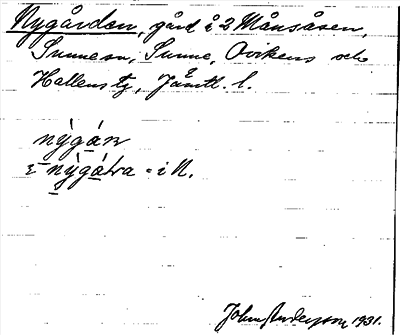 Nygården, gård i 2 Månsåsen,
Sunne sn, Sunne, Ovikens och
Hallens tg, Jämtl. l.
nỳgán
ɛ nỳgátra = i N.
John Andersson 1931.